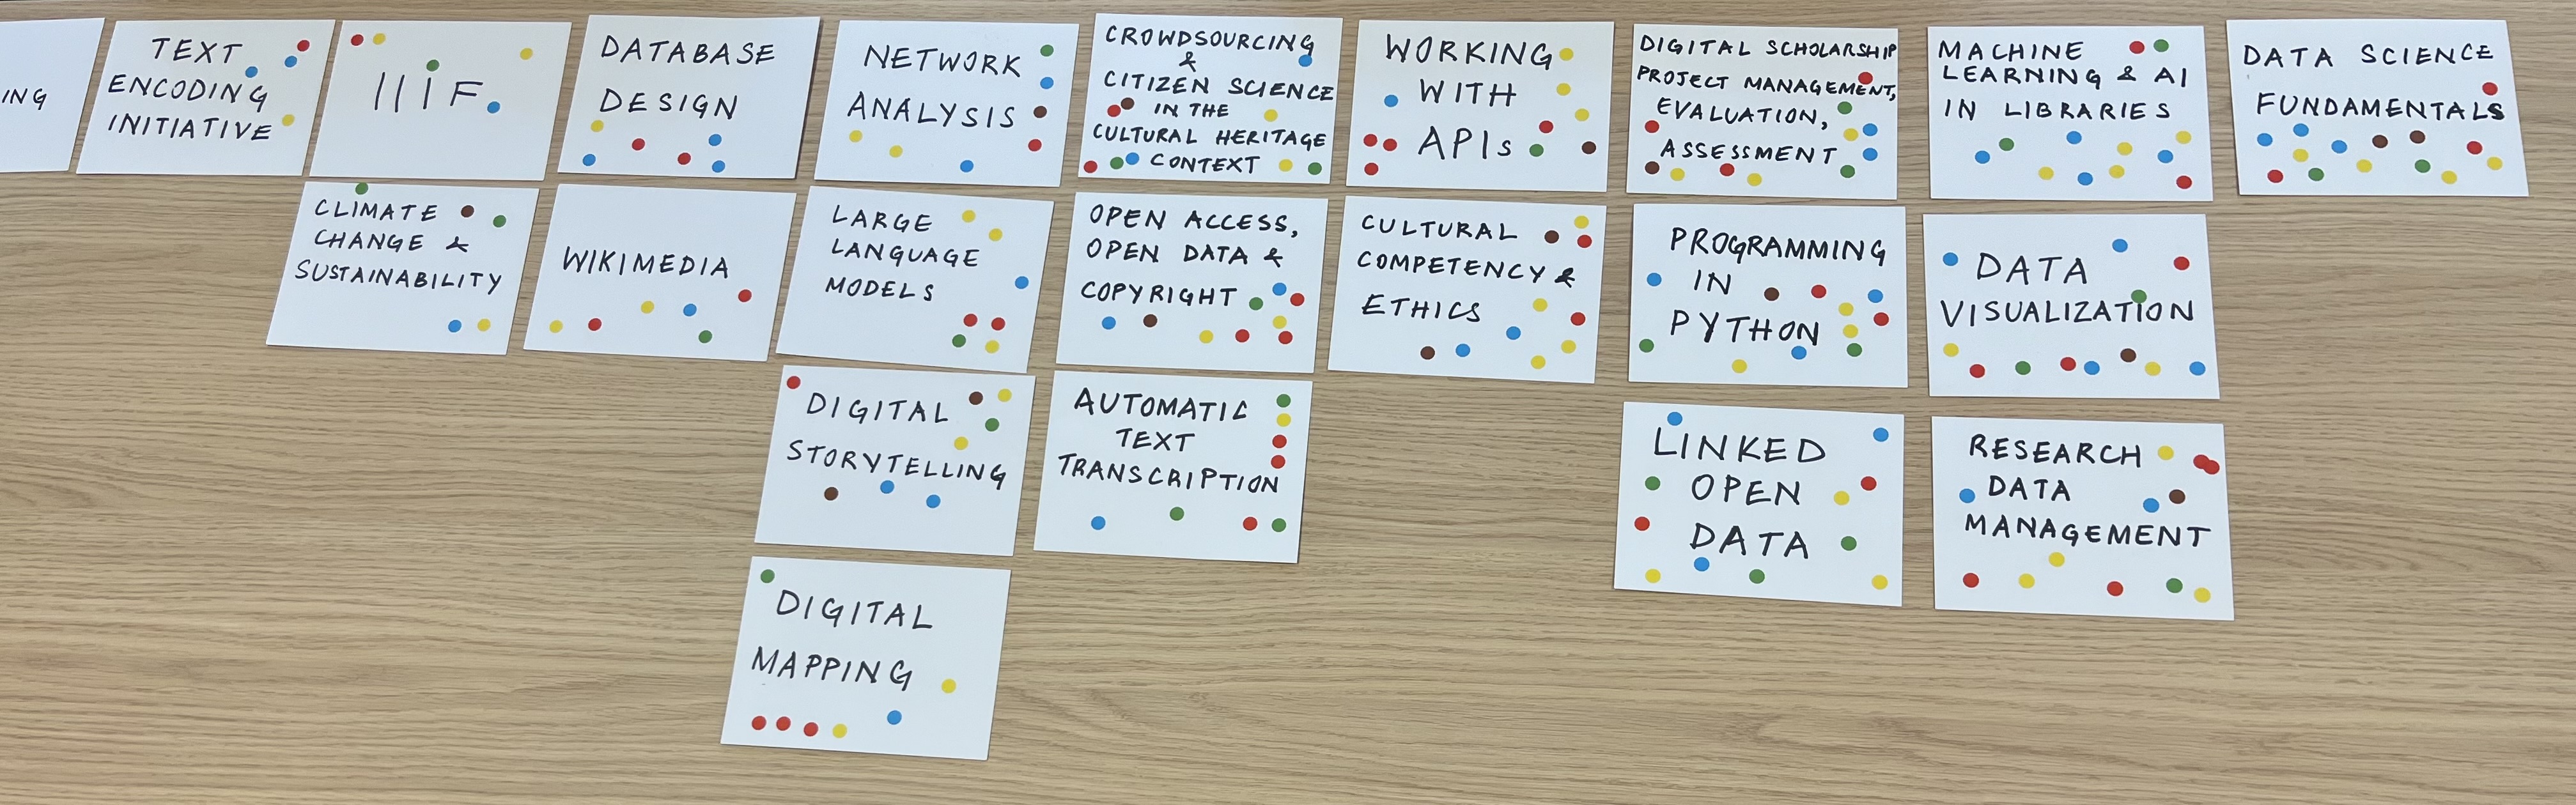 ING
TEXT
ENCODING
INITIATIVE
IIIF
DATABASE
DESIGN
NETWORK
ANALYSIS
CROWDSOURCING
&
CITIZEN SCIENCE
IN THE
CULTURAL HERITAGE
CONTEXT
WORKING
WITH
APIs
DIGITAL SCHOLARSHIP
PROJECT MANAGEMENT,
EVALUATION,
ASSESSMENT
MACHINE
LEARNING & AI
IN LIBRARIES
DATA SCIENCE
FUNDAMENTALS
CLIMATE
CHANGE &
SUSTAINABILITY
WIKIMEDIA
LARGE
LANGUAGE
MODELS
OPEN ACCESS,
OPEN DATA &
COPYRIGHT
CULTURAL
COMPETENCY &
ETHICS
PROGRAMMING
IN
PYTHON
DATA
VISUALIZATION
DIGITAL
STORYTELLING
AUTOMATIC
TEXT
TRANSCRIPTION
LINKED
OPEN
DATA
RESEARCH
DATA
MANAGEMENT
DIGITAL
MAPPING